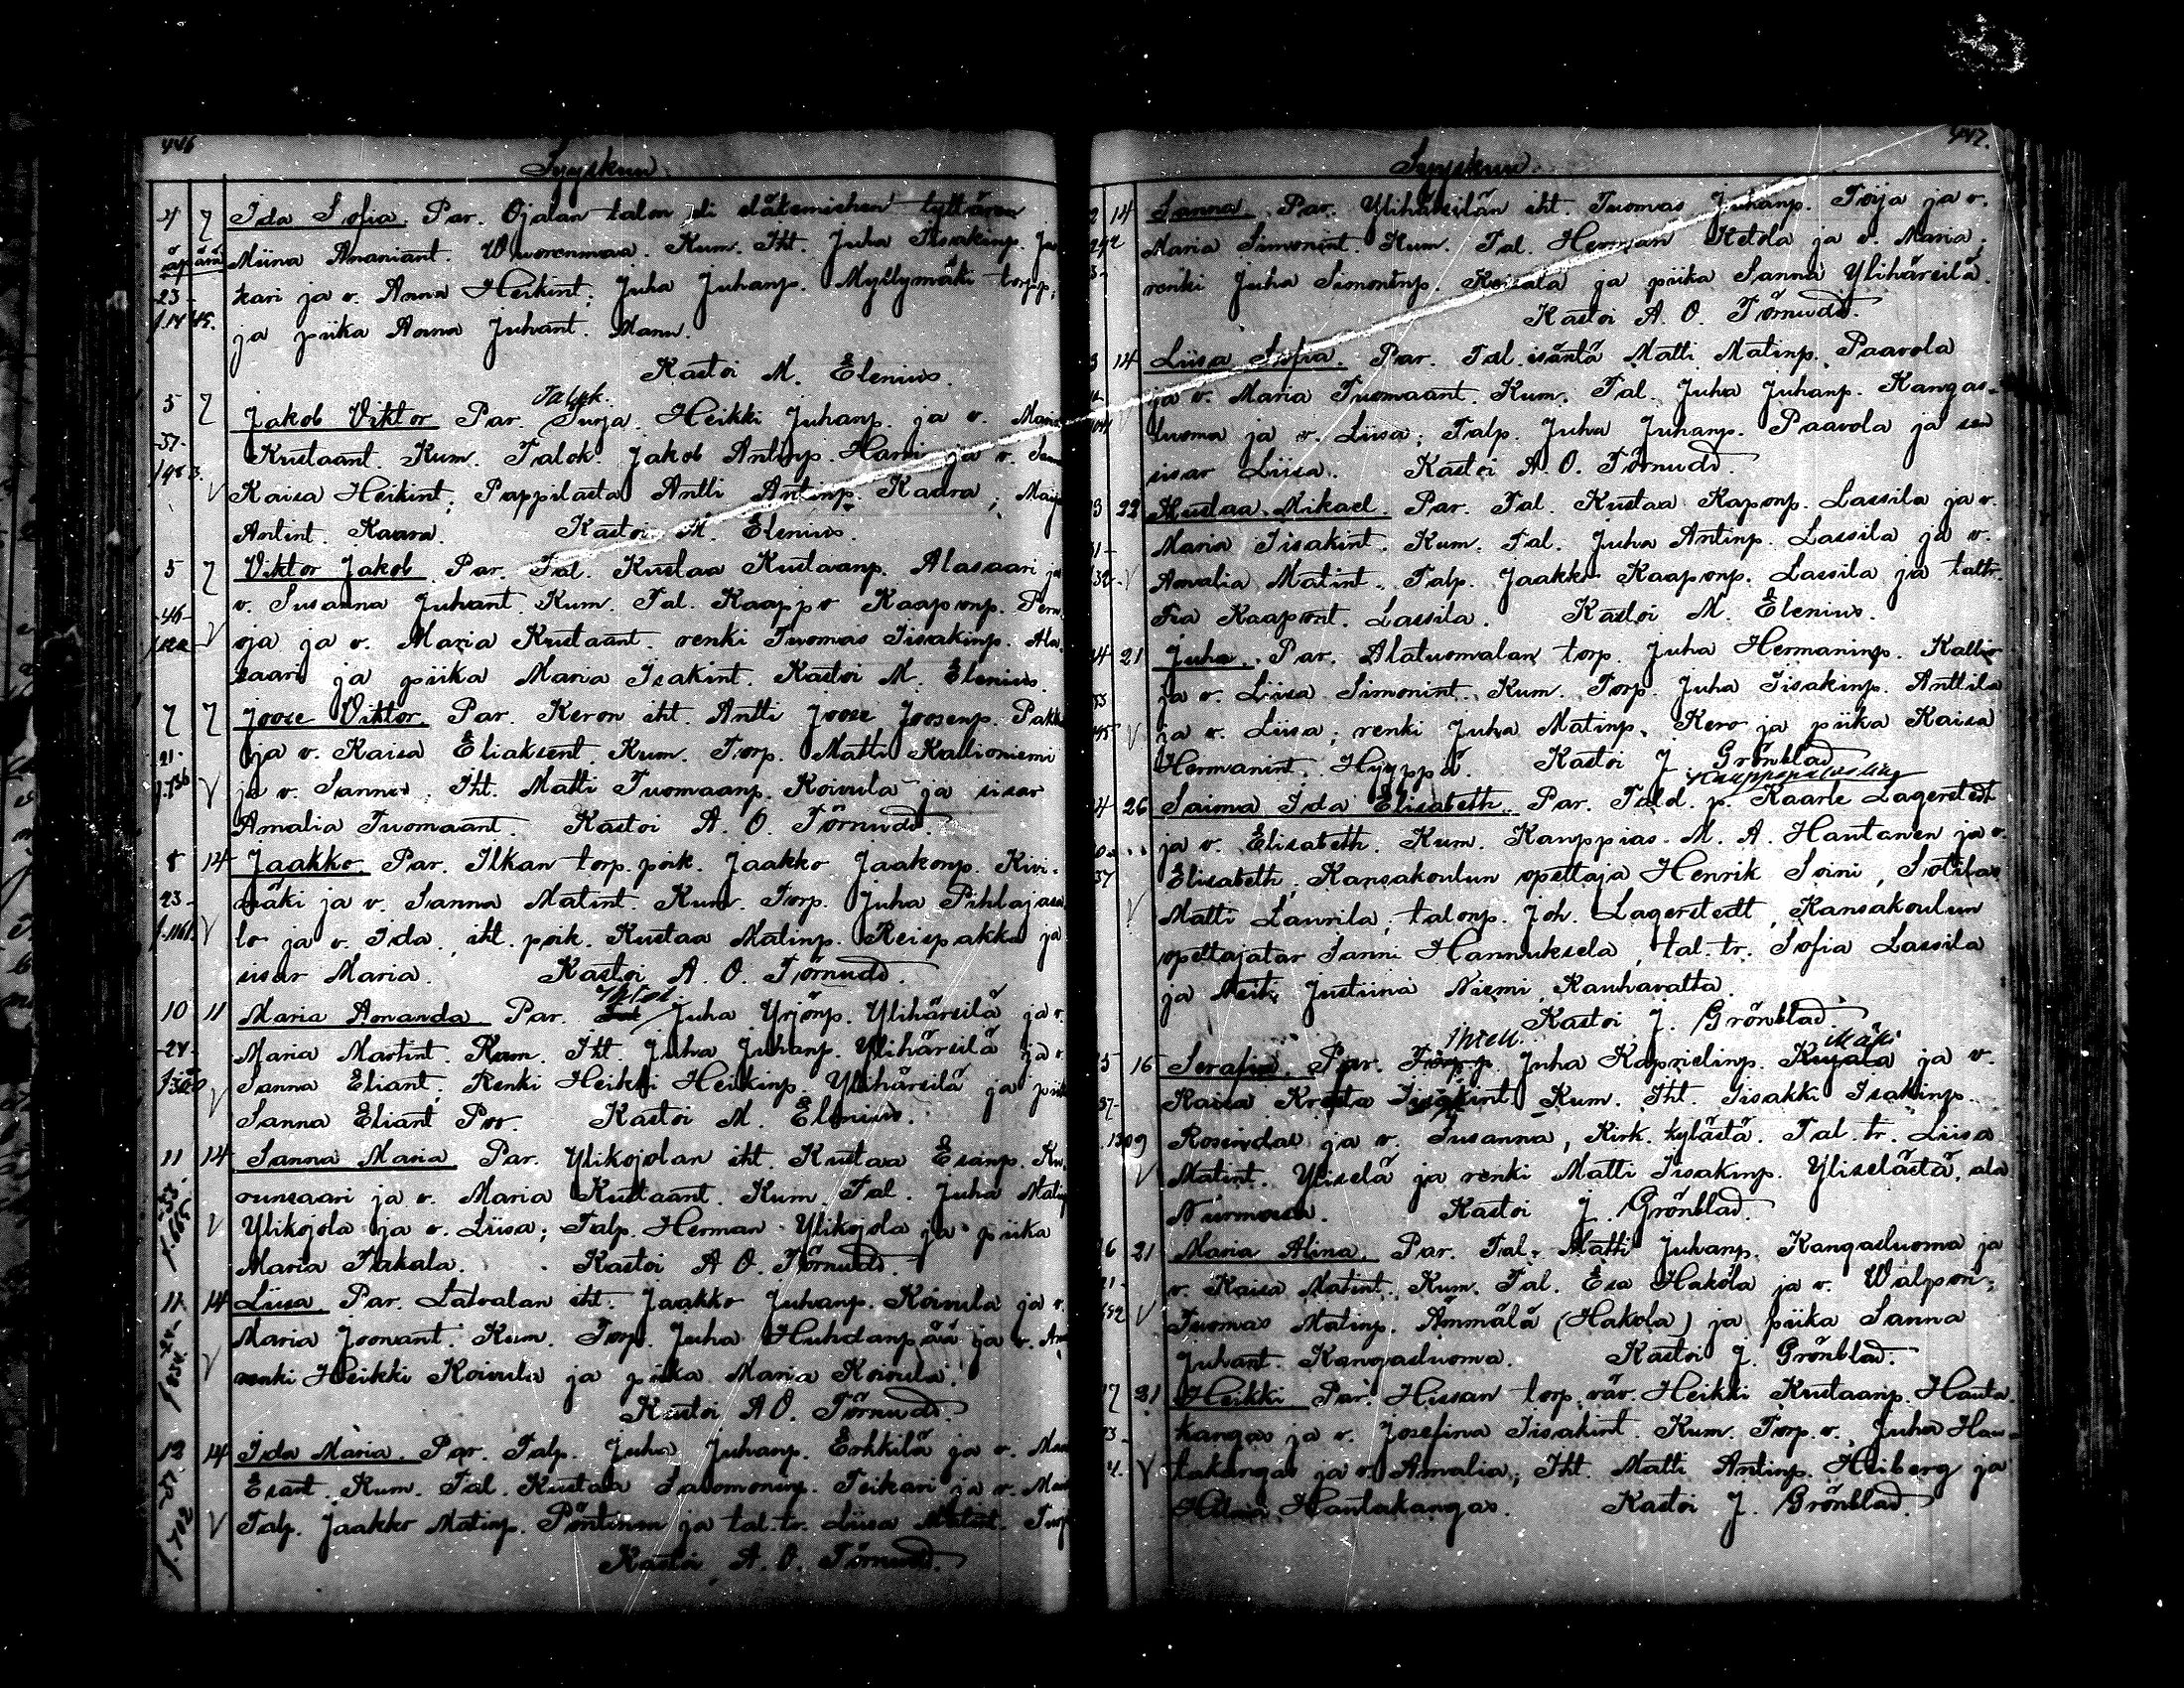 446
Syyskuu
4 7 Ida Sofia. Par. Ojalan talon eläkemiehen tyttären
Miina Ananiant. Wuorenmaa. Kum. Iht. Juha Iisakinp.
23 kari ja v. Anna Heikint; Juha Juhanp. Myllymäki torpp;
ja piika Anna Juhant. Mann.
Kastoi M. Elenius.
Talok.
5 7 Jakob Viktor Par. Heikki Juhanp. ja v. Maria
37 Kustaant. Kum. Talok. Jakob Antinp. Harri ja v.
Kaisa Heikint; Pappilasta Antti Antinp. Kaara;
Antint. Kaara. Kastoi M. Elenius.
5 7 Viktor Jakob. Par. Tal. Kustaa Kustaanp. Alasaari ja
46 v. Susanna Juhant. Kum. Tal. Kaappo Kaaponp.
oja ja v. Maria Kustaant. renki Tuomas Iisakinp. Ala
saari ja piika Maria Isakint. Kastoi M. Elenius.
7 7 Joose Viktor. Par. Keron iht. Antti Joose Joosenp.
21 ja v. Kaisa Eliaksent. Kum. Torp. Matti Kallioniemi
ja v. Sanna. Iht. Matti Tuomaanp. Koivula ja sisar
Amalia Tuomaant. Kastoi A. O. Törnudd.
8 14 Jaakko. Par. Ilkan torp. poik. Jaakko Jaakonp. Kivi-
23 mäki ja v. Sanna Matint. Kum. Torp. Juha Pihlajasa
lo ja v. Ida, iht. poik. Kustaa Matinp. Reispakka ja
sisar Maria. Kastoi A. O. Törnudd.
10 11 Maria Amanda Par. Juha Yrjönp. Ylihärsilä ja v.
24 Maria Martint. Kum. Iht. Juha Juhanp. Ylihärsilä ja v.
Sanna Eliant, Renki Heikki Heikinp. Ylihärsilä ja
Sanna Eliant Por. Kastoi M. Elenius.
11 14 Sanna Maria Par. Ylikojolan iht. Kustaa Esanp.
runsaari ja v. Maria Kustaant. Kum. Tal. Juha
Ylikojola ja v. Liisa; Talp. Herman Ylikojola ja piika
Maria Takala. Kastoi A O. Törnudd.
11 14 Liisa Par. Latvalan iht. Jaakko Juhanp. Koivula ja v.
Maria Joonant. Kum. Torp. Juha Huhdanpää ja v.
renki Heikki Koivula ja piika Maria Koivula.
Kastoi A O. Törnudd.
12 14 Ida Maria. Par. Talp. Juha Juhanp. Erkkilä ja v.
Esant. Kum. Tal. Kustaa Salomoninp. Teikari ja v.
Talp. Jaakko Matinp. Pöntinen ja tal. tr. Liisa Matint.
Kastoi A. O. Törnudd.
447.
Syyskuu
14 Sanna. Par. Ylihärsilän iht. Tuomas Juhanp. Toija ja v.
Maria Simonint. Kum. Tal. Herman Ketola ja v. Maria.
renki Juha Simoninp. Koisala ja piika Sanna Ylihärsilä.
Kastoi A. O. Törnudd.
14 Liisa Sofia. Par. Tal. isäntä Matti Matinp. Paavola
ja v. Maria Tuomaant. Kum. Tal. Juha Juhanp. Kangas-
luoma ja v. Liisa; Talp. Juha Juhanp. Paavola ja sen
sisar Liisa. Kastoi A. O. Törnudd.
22 Kustaa Mikael. Par. Tal. Kustaa Kaponp. Lassila ja v.
Maria Iisakint. Kum. Tal. Juha Antinp. Lassila ja v.
Amalia Matint. Talp. Jaakko Kaaponp. Lassila ja taltr.
Fia Kaapont. Lassila. Kastoi M. Elenius.
21 Juha. Par. Alatuomalan torp. Juha Hermaninp. Kallio
ja v. Liisa Simonint. Kum. Torp. Juha Iisakinp. Anttila
ja v. Liisa; renki Juha Matinp. Kero ja piika Kaisa
Hermanint. Hyyppä. Kastoi J. Grönblad
26 Saima Ida Elisabeth. Par. Kaarle Lagerstedt
ja v. Elisabeth. Kum. Kauppias M. A. Hautanen ja v.
Elisabeth; Kansakoulun opettaja Henrik Soini, Sotilas
Matti Laurila; talonp. Joh. Lagerstedt, Kansakoulun
opettajatar Sanni Hannuksela, tal. tr. Sofia Lassila
ja Neiti Justiina Niemi Kauhavalta.
Kastoi J. Grönblad.
Mäki
16 Serafia. Par. Juha Kaprielinp. Kujala ja v.
Kaisa Kreeta Iisakint Kum. Iht. Iisakki Isakinp.
Rosendal ja v. Susanna, Kirk. kylästä. Tal. tr. Liisa
Matint. Yliselä ja renki Matti Iisakinp. Yliselästä, ala
Nurmossa. Kastoi J. Grönblad.
21 Maria Alina. Par. Tal. Matti Juhanp. Kangasluoma ja
v. Kaisa Matint. Kum. Tal. Esa Hakola ja v. Walpori;
Tuomas Matinp. Ämmälä (Hakola) ja piika Sanna
Juhant. Kangasluoma. Kastoi J. Grönblad.
21 Heikki Par. Hissan torp. väv. Heikki Kustaanp. Hauta
kangas ja v. Josefina Iisakint. Kum. Torp. v. Juha Hau-
takangas ja v. Amalia; Iht. Matti Antinp. Heiberg ja
Hautakangas. Kastoi J. Grönblad.